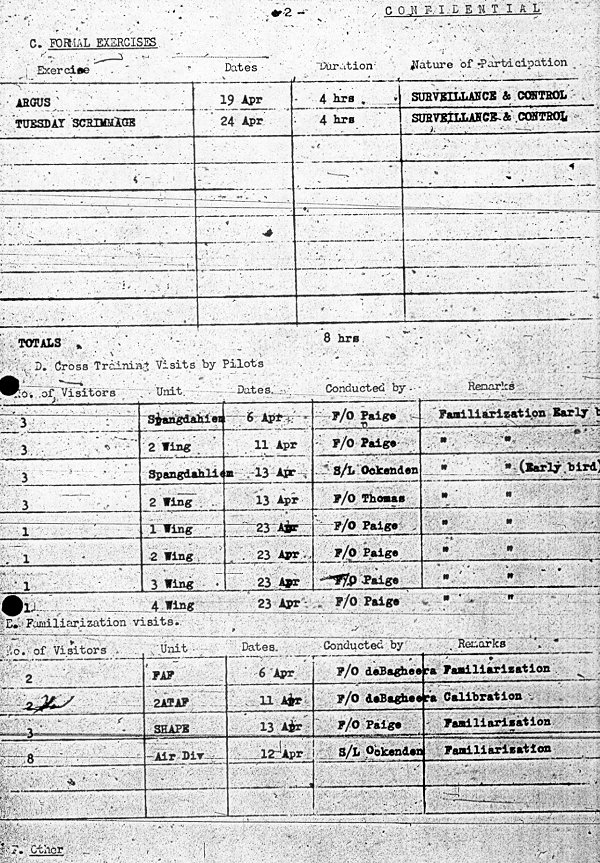 - 2 - CONFIDENTIAL
C. FORMAL EXERCISES
Exercise Dates Duration Nature of Participation
ARGUS 19 Apr 4 hrs . SURVEILLANCE & CONTROL
TUESDAY SCRIMMAGE 24 Apr 4 hrs SURVEILLANCE & CONTROL
TOTALS 8 hrs
D. Cross Training Visits by Pilots
No. of Visitors Unit Dates Conducted by Remarks
3 Spangdahlem 6 Apr F/O Paige Familiarization Early b
3 2 Wing 11 Apr F/O Paige " "
3 Spangdahliem 13 Apr S/L Ockenden " " (Early bird)
3 2 Wing 13 Apr F/O Thomas " "
1 1 Wing 23 Apr F/O Paige " "
1 2 Wing 23 Apr F/O Paige " "
1 3 Wing 23 Apr F/O Paige " "
1 4 Wing 23 Apr F/O Paige " "
E. Familiarization visits.
No. of Visitors Unit Dates. Conducted by Remarks
2 FAF 6 Apr F/O deBagheera Familiarization
2 2ATAF 11 Apr F/O deBagheera Calibration
3 SHAPE 13 Apr F/O Paige Familiarization
8 Air Div 12 Apr S/L Ockenden Familiarization
F. Other